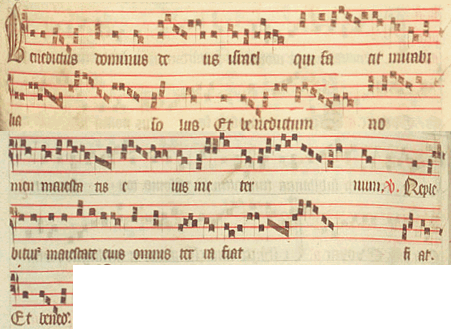 Benedictus dominus de us israel qui fa cit mirabi
lia so lus. Et benedictum no
men maiesta tis e ius me ter num. V. Reple
bitur maiestate eius omnis ter ra fiat fi at.
Et bened.